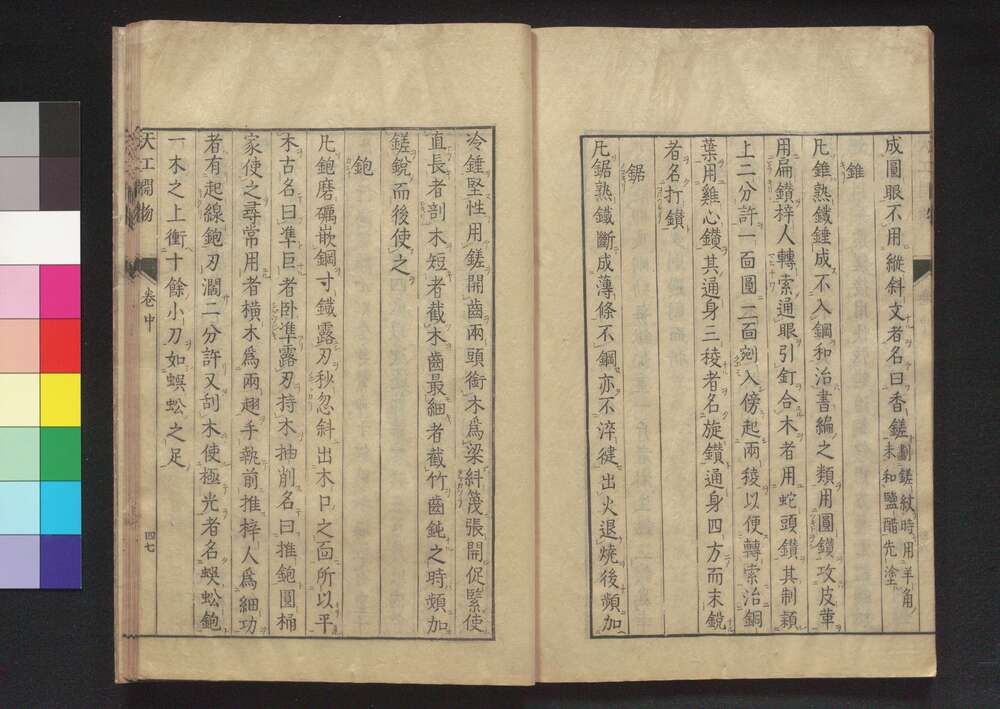 成圓眼不用縱斜文者名曰香鎈劃鎈紋時用羊角
末和鹽醋先塗
錐
凡錐熟鐵錘成不入鋼和治書編之類用圓鑽攻皮革
用扁鑽梓人轉索通眼引釘合木者用蛇頭鑽其制穎
上二分許一面圓二面剜入傍起兩稜以便轉索治銅
葉用雞心鑽其通身三稜者名旋鑽通身四方而末銳
者名打鑽
鋸
凡鋸熟鐵斷成薄條不鋼亦不淬健出火退燒後頻加
冷錘堅性用鎈開齒兩頭銜木為梁糾篾張開促緊使
直長者剖木短者截木齒最細者截竹齒鈍之時頻加
鎈銳而後使之
鉋
凡鉋磨礪嵌鋼寸鐵露刃秒忽斜出木口之面所以平
木古名曰準巨者卧準露刃持木抽削名曰推鉋圓桶
家使之尋常用者橫木為兩翅手執前推梓人為細功
者有起線鉋刃濶二分許又刮木使極光者名蜈蚣鉋
一木之上銜十餘小刀如蜈蚣之足
天工開物
卷中
四七